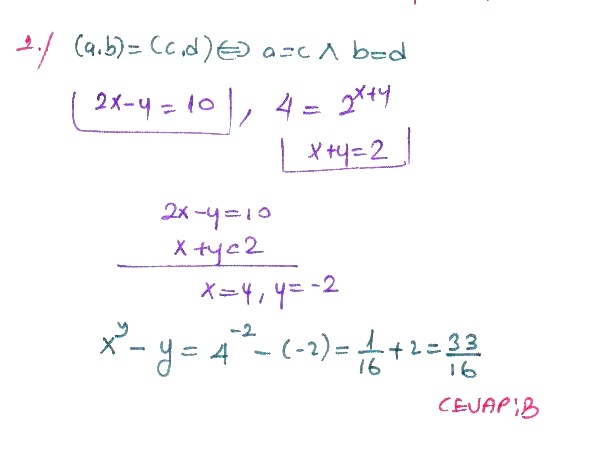 2./ (a,b)=(c,d)⇔ a=c ∧ b=d
2x-y=10, 4 = 2^{x+y}
x+y=2
2x-y=10
x+y=2
x=4, y=-2
x^y - y = 4^{-2} - (-2) = 1/16 + 2 = 33/16
CEVAP:B